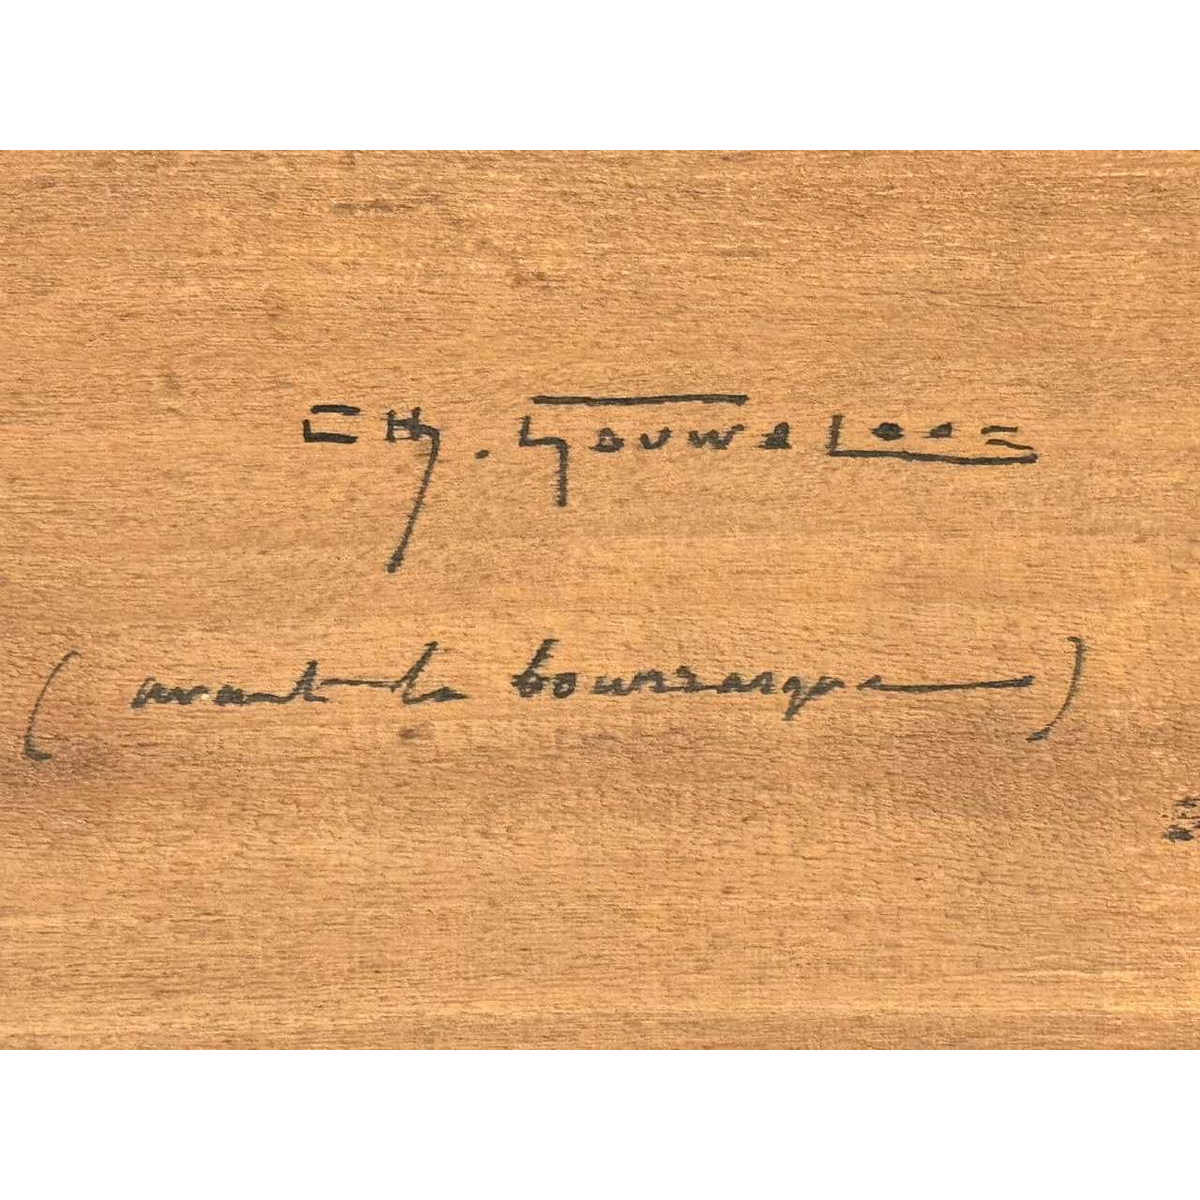 CH. Gouweloos
(avant la bourrasque)